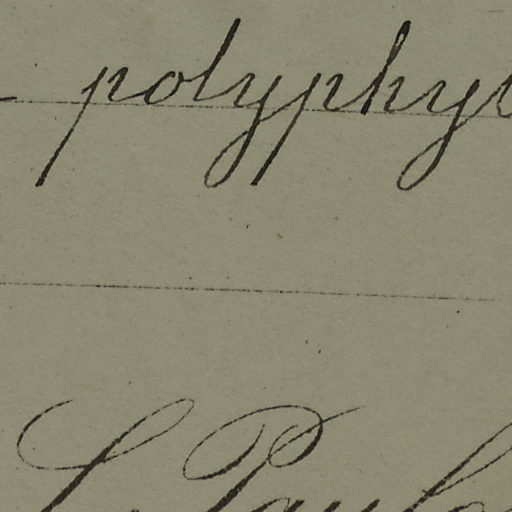 polyphy
S. Paulo